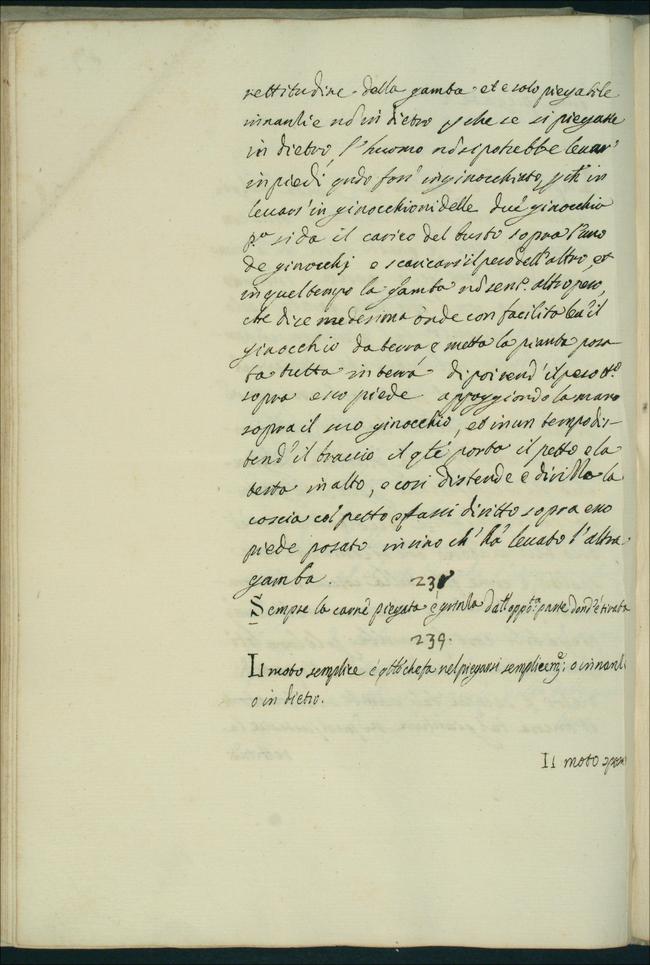 rettitudine della gamba et e solo piegabile
innanti e nō in dietro, pche se si piegasse
in dietro, l'huomo nō si potrebbe levar'
in piedi qndo foss' inginocchiato, pch' in
levars' in ginocchioni delle due ginocchio
pa. si da il carico del busto sopra l'uno
de ginocchj e scaricasi il peso dell' altro, et
in quel tempo la gamba nō sent. altro peso,
che di se medesima onde con facilita leva il
ginocchio da terra, e metta la pianta posa
ta tutta in terra di poi rend' il peso tto.
sopra esso piede appoggiondo la mano
sopra il suo ginocchio, et in un tempo dis-
tend' il braccio il qle porta il petto e la
testa in alto, e cosi distende e divizza la
coscia col petto e fassi diritto sopra esso
piede posato insino ch' ha levato l'altra
gamba.
238
Sempre la carne piegata è grinza dall' oppota. parte dond' è tirata
239.
Il moto semplice è qllo che fa nel piegarsi semplicemte; o innanti
o in dietro.
Il moto